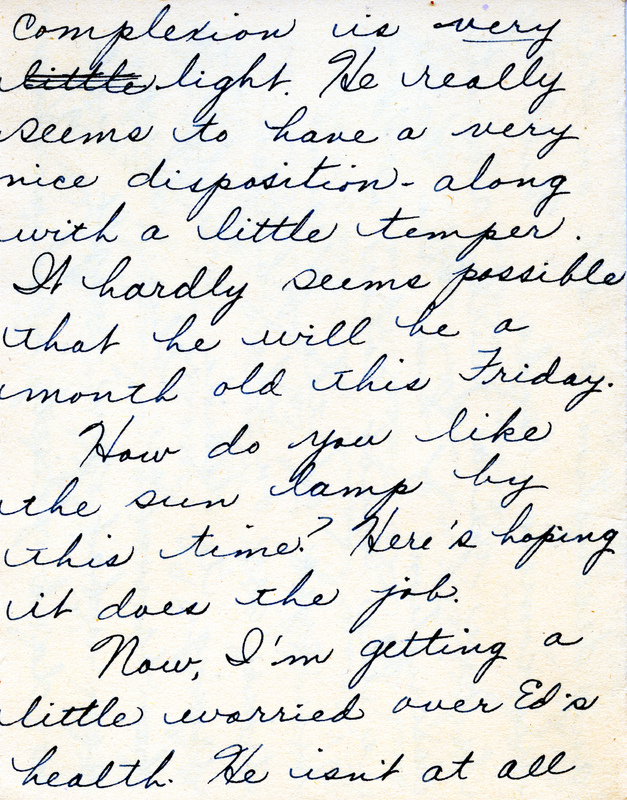 complexion is very
little light. He really
seems to have a very
nice disposition - along
with a little temper.
It hardly seems possible
that he will be a
month old this Friday.
How do you like
the sun lamp by
this time? Here's hoping
it does the job.
Now, I'm getting a
little worried over Ed's
health. He isn't at all